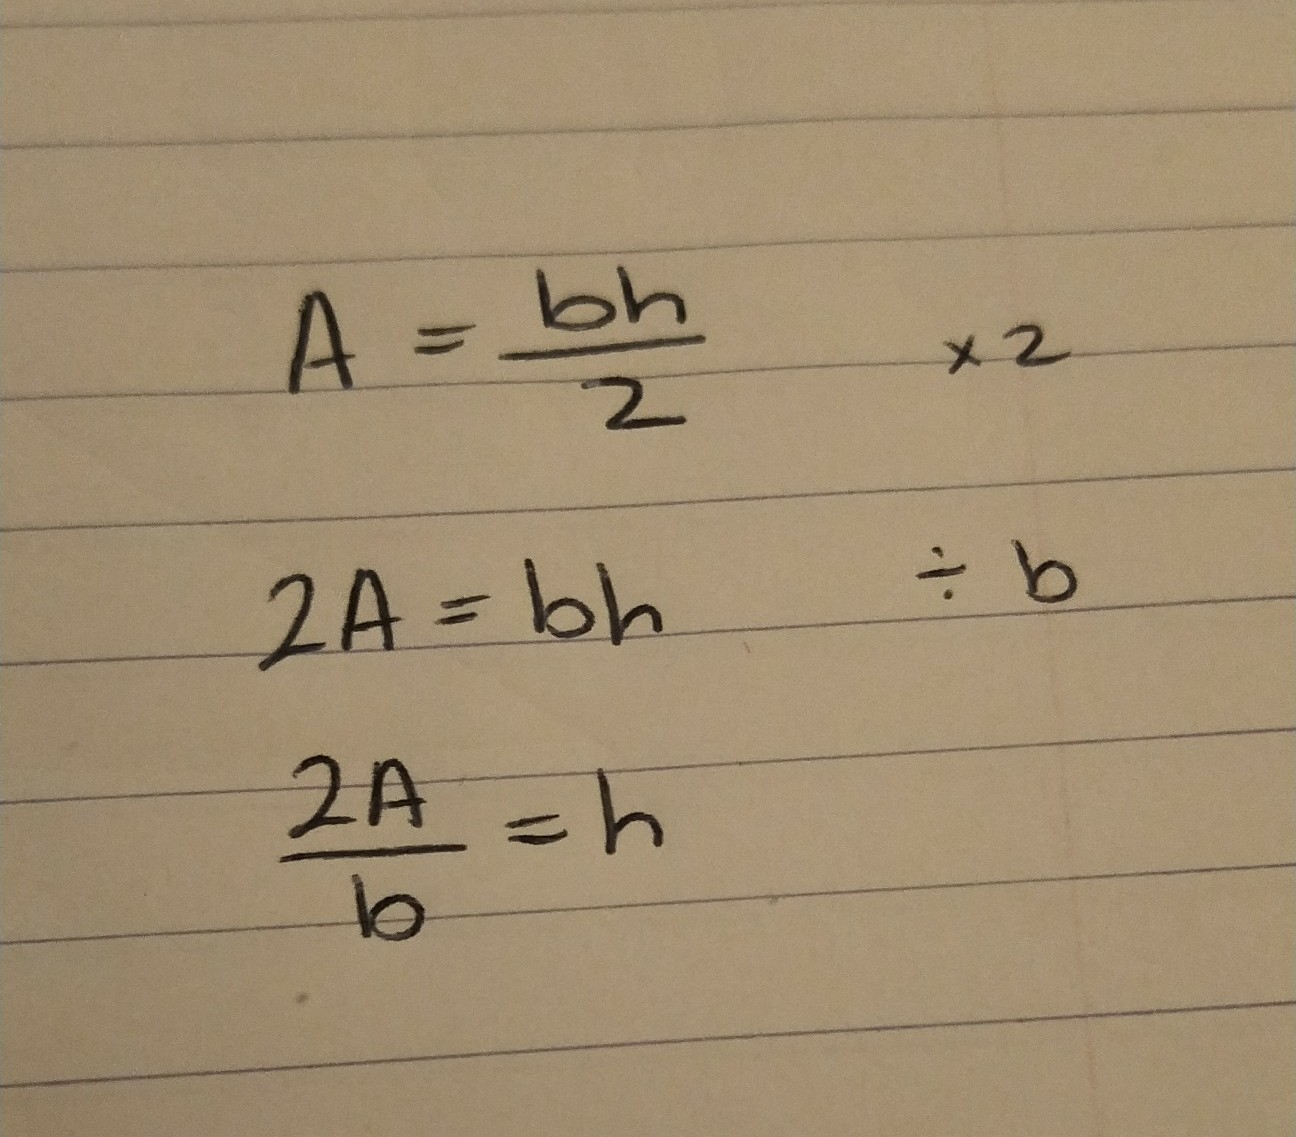 A = bh/2 ×2
2A = bh ÷ b
2A/b = h